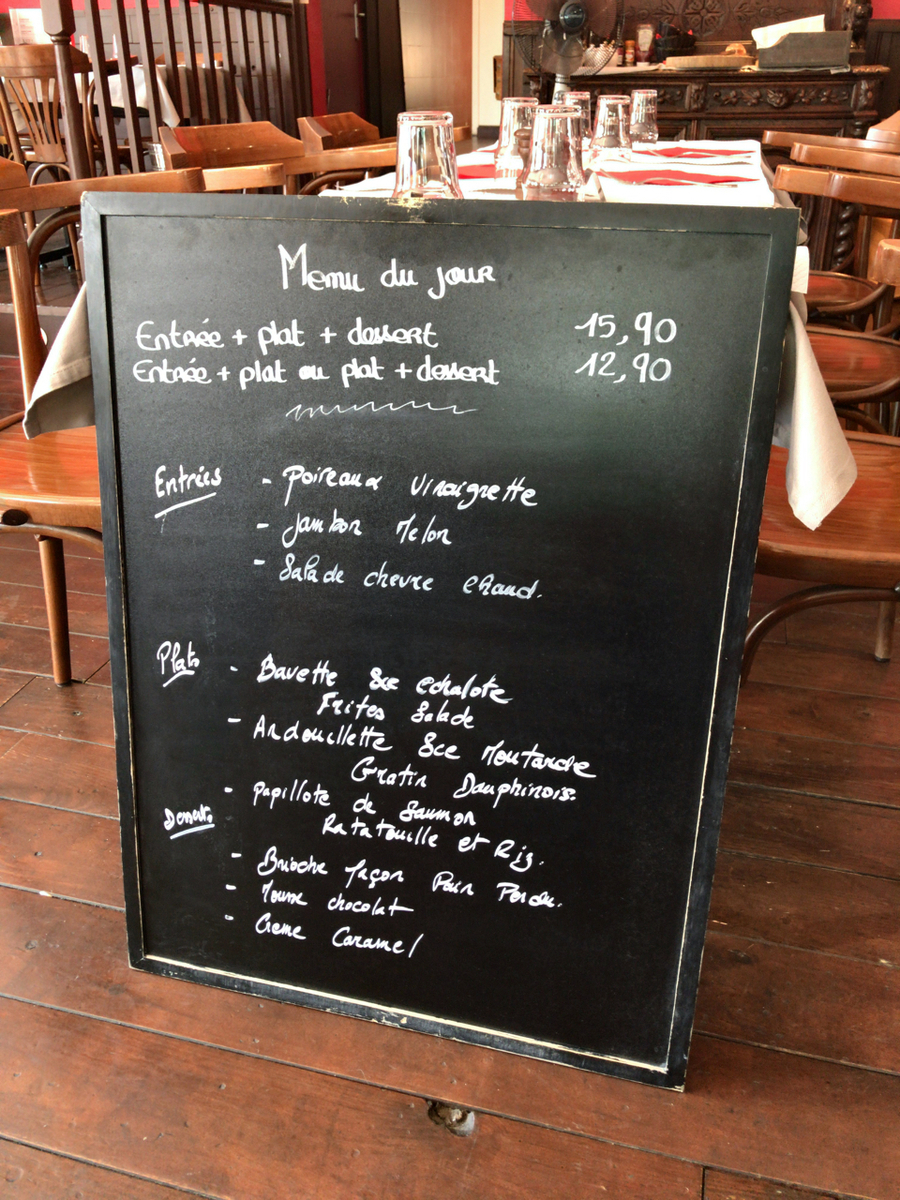 Menu du jour
Entrée + plat + dessert 15,90
Entrée + plat ou plat + dessert 12,90
Entrées - Poireaux Vinaigrette
- Jambon Melon
- Salade chevre chaud.
Plats - Bavette Sce echalote
Frites Salade
- Andouillette Sce Moutarde
Gratin Dauphinois.
- Papillote de Saumon
Ratatouille et Riz.
Desserts
- Brioche façon Pain Perdu.
- Mousse chocolat
- Creme Caramel